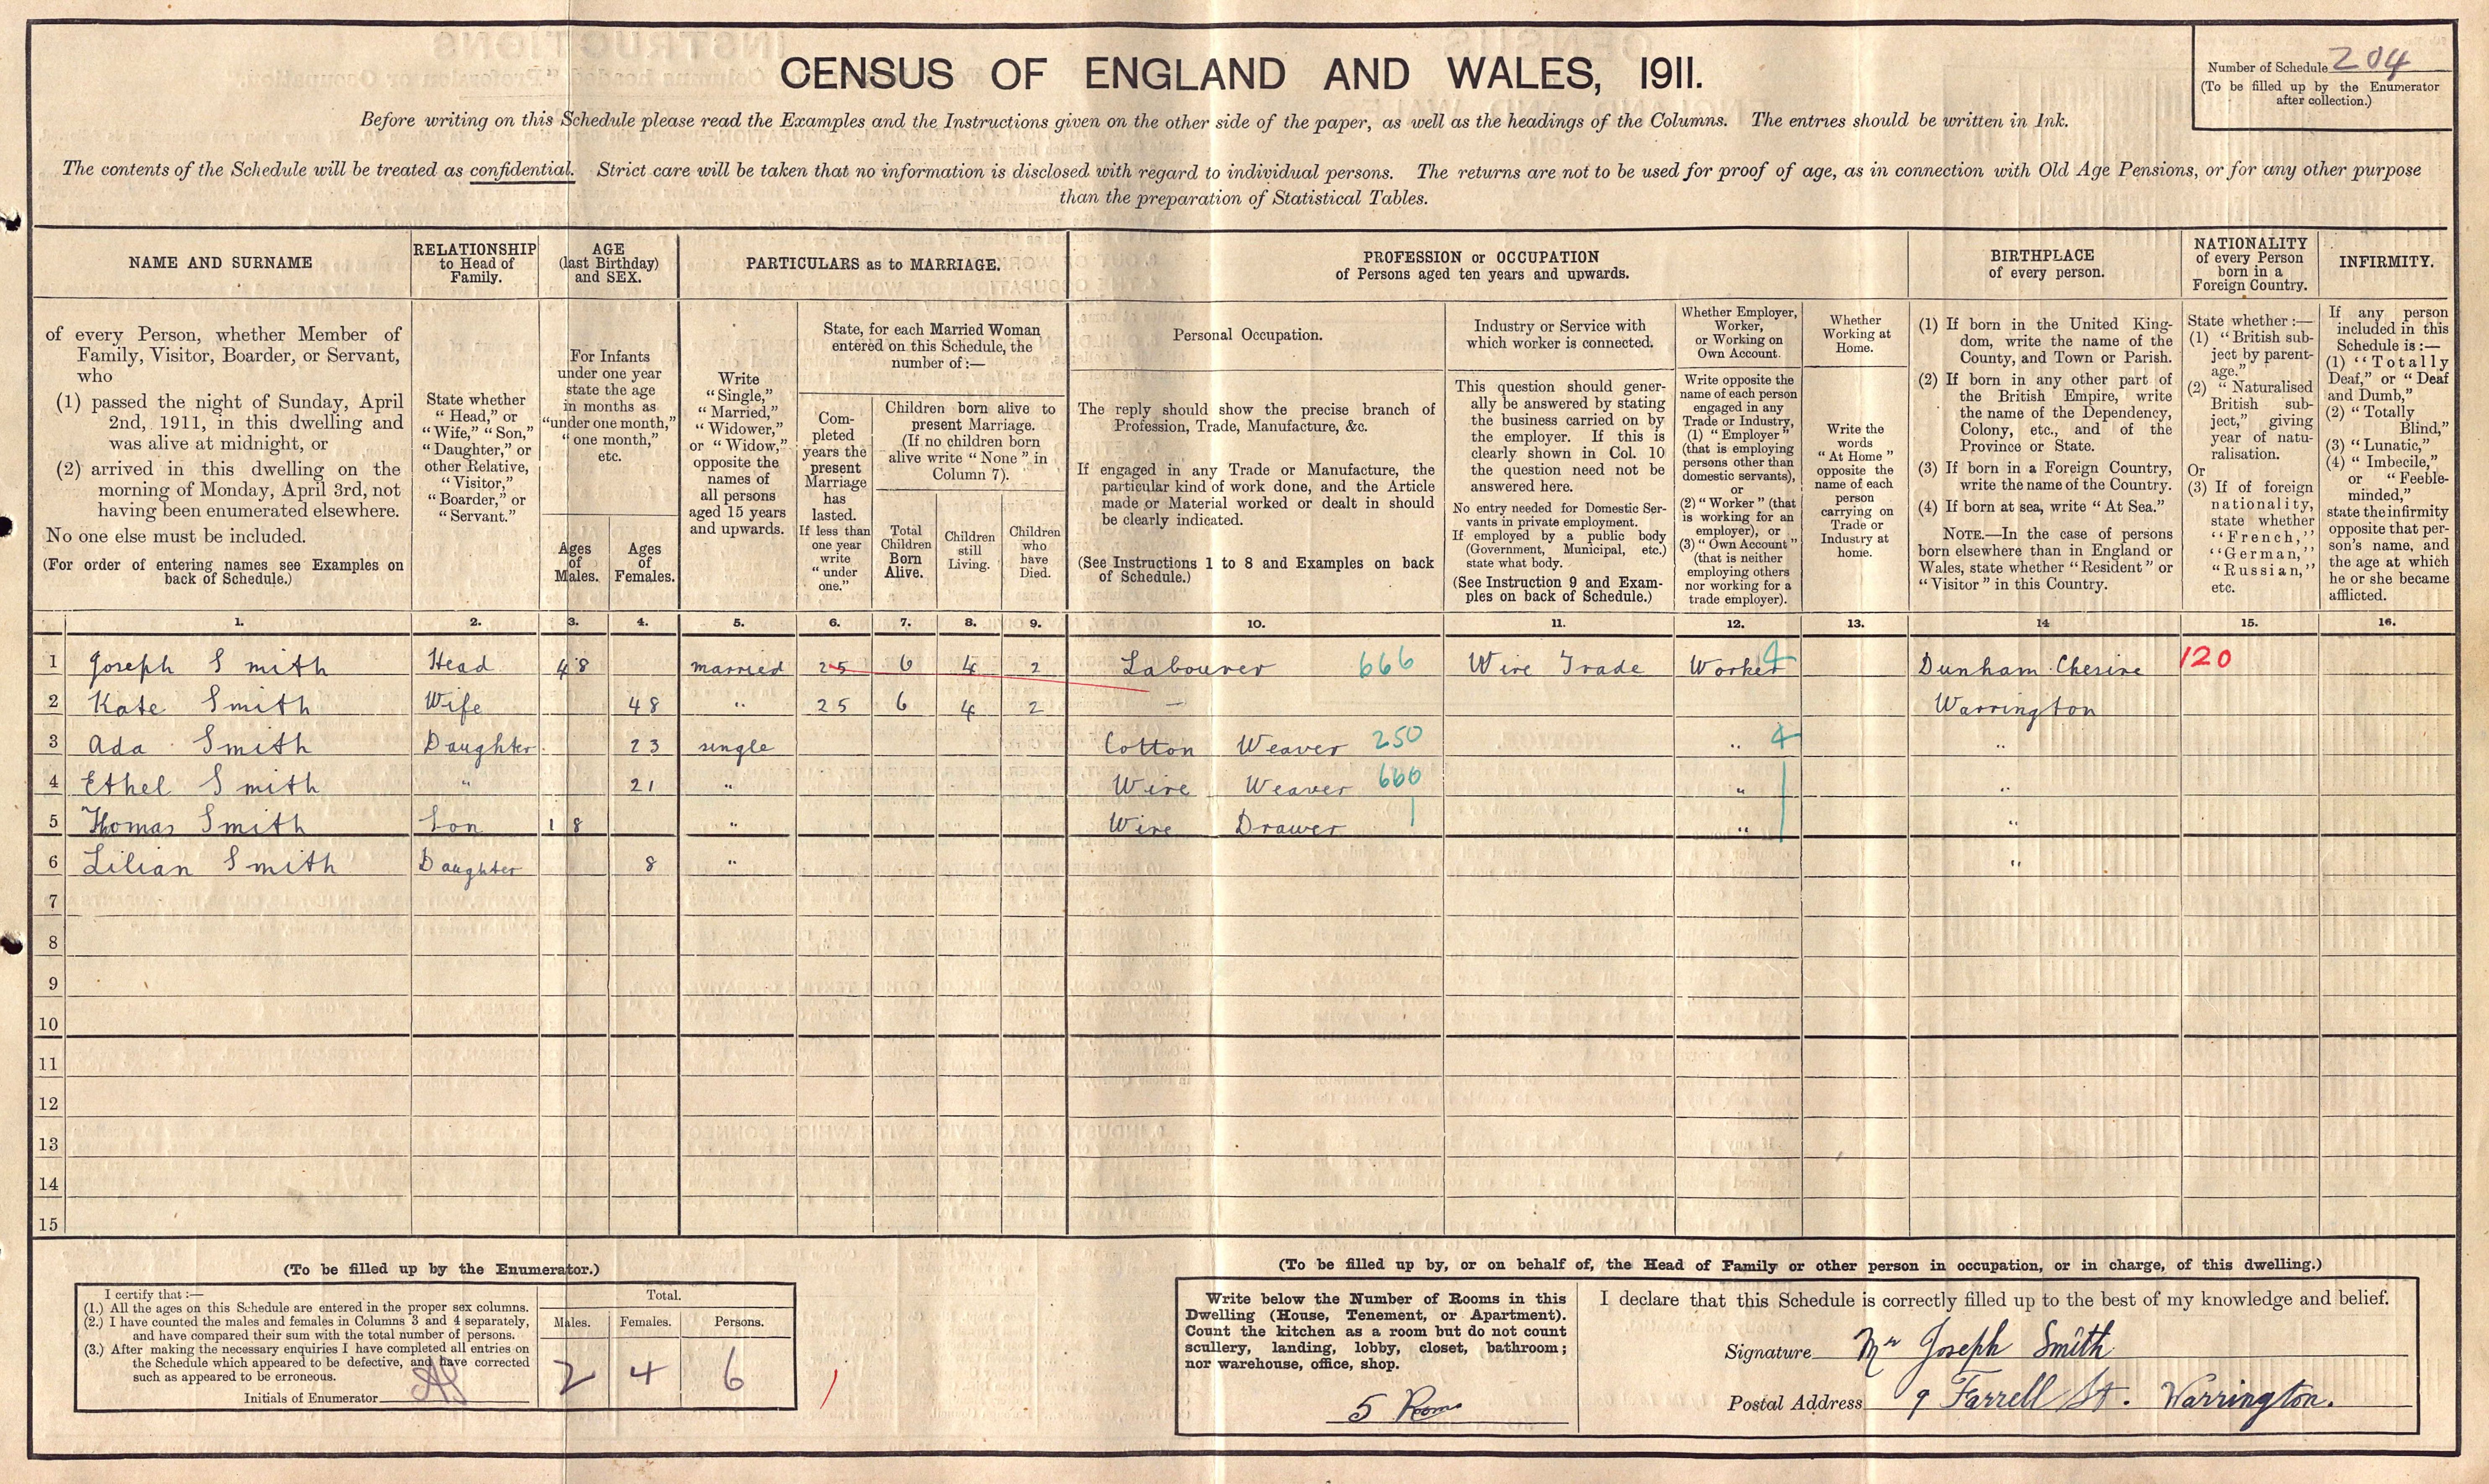 CENSUS OF ENGLAND AND WALES, 1911.
Number of Schedule 204
(To be filled up by the Enumerator
after collection.)
Before writing on this Schedule please read the Examples and the Instructions given on the other side of the paper, as well as the headings of the Columns. The entries should be written in Ink.
The contents of the Schedule will be treated as confidential. Strict care will be taken that no information is disclosed with regard to individual persons. The returns are not to be used for proof of age, as in connection with Old Age Pensions, or for any other purpose
than the preparation of Statistical Tables.
NAME AND SURNAME
of every Person, whether Member of
Family, Visitor, Boarder, or Servant,
who
(1) passed the night of Sunday, April
2nd, 1911, in this dwelling and
was alive at midnight, or
(2) arrived in this dwelling on the
morning of Monday, April 3rd, not
having been enumerated elsewhere.
No one else must be included.
(For order of entering names see Examples on
back of Schedule.)
RELATIONSHIP
to Head of
Family.
State whether
"Head," or
"Wife," "Son,"
"Daughter," or
other Relative,
"Visitor,"
"Boarder," or
"Servant."
AGE
(last Birthday)
and SEX.
For Infants
under one year
state the age
in months as
"under one month,"
"one month,"
etc.
Ages
of
Males.
Ages
of
Females.
PARTICULARS as to MARRIAGE.
Write
"Single,"
"Married,"
"Widower,"
or "Widow,"
opposite the
names of
all persons
aged 15 years
and upwards.
State, for each Married Woman
entered on this Schedule, the
number of:—
Com-
pleted
years the
present
Marriage
has
lasted.
If less than
one year
write
"under
one."
Children born alive to
present Marriage.
(If no children born
alive write "None" in
Column 7).
Total
Children
Born
Alive.
Children
still
Living.
Children
who
have
Died.
PROFESSION or OCCUPATION
of Persons aged ten years and upwards.
Personal Occupation.
The reply should show the precise branch of
Profession, Trade, Manufacture, &c.
If engaged in any Trade or Manufacture, the
particular kind of work done, and the Article
made or Material worked or dealt in should
be clearly indicated.
(See Instructions 1 to 8 and Examples on back
of Schedule.)
Industry or Service with
which worker is connected.
This question should gener-
ally be answered by stating
the business carried on by
the employer. If this is
clearly shown in Col. 10
the question need not be
answered here.
No entry needed for Domestic Ser-
vants in private employment.
If employed by a public body
(Government, Municipal, etc.)
state what body.
(See Instruction 9 and Exam-
ples on back of Schedule.)
Whether Employer,
Worker,
or Working on
Own Account.
Write opposite the
name of each person
engaged in any
Trade or Industry,
(1) "Employer"
(that is employing
persons other than
domestic servants),
or
(2) "Worker" (that
is working for an
employer), or
(3) "Own Account"
(that is neither
employing others
nor working for a
trade employer).
Whether
Working at
Home.
Write the
words
"At Home"
opposite the
name of each
person
carrying on
Trade or
Industry at
home.
BIRTHPLACE
of every person.
(1) If born in the United King-
dom, write the name of the
County, and Town or Parish.
(2) If born in any other part of
the British Empire, write
the name of the Dependency,
Colony, etc., and of the
Province or State.
(3) If born in a Foreign Country,
write the name of the Country.
(4) If born at sea, write "At Sea."
NOTE.—In the case of persons
born elsewhere than in England or
Wales, state whether "Resident" or
"Visitor" in this Country.
NATIONALITY
of every Person
born in a
Foreign Country.
State whether:—
(1) "British sub-
ject by parent-
age."
(2) "Naturalised
British sub-
ject," giving
year of natu-
ralisation.
Or
(3) If of foreign
nationality,
state whether
"French,"
"German,"
"Russian,"
etc.
INFIRMITY.
If any person
included in this
Schedule is:—
(1) "Totally
Deaf," or "Deaf
and Dumb,"
(2) "Totally
Blind,"
(3) "Lunatic,"
(4) "Imbecile,"
or "Feeble-
minded,"
state the infirmity
opposite that per-
son's name, and
the age at which
he or she became
afflicted.
1. 2. 3. 4. 5. 6. 7. 8. 9. 10. 11. 12. 13. 14 15. 16.
1 Joseph Smith Head 48 married 25 6 4 2 Labourer 666 Wire Trade Worker 4 Dunham Chesire 120
2 Kate Smith Wife 48 " 25 6 4 2 — Warrington
3 Ada Smith Daughter 23 single Cotton Weaver 250 " 4 "
4 Ethel Smith " 21 " Wire Weaver 660 " "
5 Thomas Smith Son 18 " Wire Drawer " "
6 Lilian Smith Daughter 8 " "
7
8
9
10
11
12
13
14
15
(To be filled up by the Enumerator.)
I certify that:—
(1.) All the ages on this Schedule are entered in the proper sex columns.
(2.) I have counted the males and females in Columns 3 and 4 separately,
and have compared their sum with the total number of persons.
(3.) After making the necessary enquiries I have completed all entries on
the Schedule which appeared to be defective, and have corrected
such as appeared to be erroneous.
Initials of Enumerator
Total.
Males. Females. Persons.
2 4 6
(To be filled up by, or on behalf of, the Head of Family or other person in occupation, or in charge, of this dwelling.)
Write below the Number of Rooms in this
Dwelling (House, Tenement, or Apartment).
Count the kitchen as a room but do not count
scullery, landing, lobby, closet, bathroom;
nor warehouse, office, shop.
5 Rooms
I declare that this Schedule is correctly filled up to the best of my knowledge and belief.
Signature Mr Joseph Smith
Postal Address 9 Farrell St. Warrington.